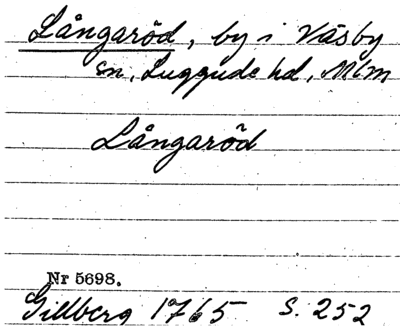 Långaröd, by i Väsby
sn, Luggude hd, Mlm
Långaröd
Nr 5698.
Gillberg 1765 S. 252